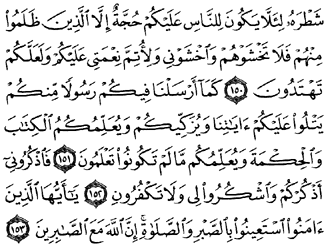 شَطْرَهُۥ لِئَلَّا يَكُونَ لِلنَّاسِ عَلَيْكُمْ حُجَّةٌ إِلَّا ٱلَّذِينَ ظَلَمُوا۟
مِنْهُمْ فَلَا تَخْشَوْهُمْ وَٱخْشَوْنِى وَلِأُتِمَّ نِعْمَتِى عَلَيْكُمْ وَلَعَلَّكُمْ
تَهْتَدُونَ ١٥٠ كَمَآ أَرْسَلْنَا فِيكُمْ رَسُولًا مِّنكُمْ
يَتْلُوا۟ عَلَيْكُمْ ءَايَٰتِنَا وَيُزَكِّيكُمْ وَيُعَلِّمُكُمُ ٱلْكِتَٰبَ
وَٱلْحِكْمَةَ وَيُعَلِّمُكُم مَّا لَمْ تَكُونُوا۟ تَعْلَمُونَ ١٥١ فَٱذْكُرُونِىٓ
أَذْكُرْكُمْ وَٱشْكُرُوا۟ لِى وَلَا تَكْفُرُونِ ١٥٢ يَٰٓأَيُّهَا ٱلَّذِينَ
ءَامَنُوا۟ ٱسْتَعِينُوا۟ بِٱلصَّبْرِ وَٱلصَّلَوٰةِ ۚ إِنَّ ٱللَّهَ مَعَ ٱلصَّٰبِرِينَ ١٥٣